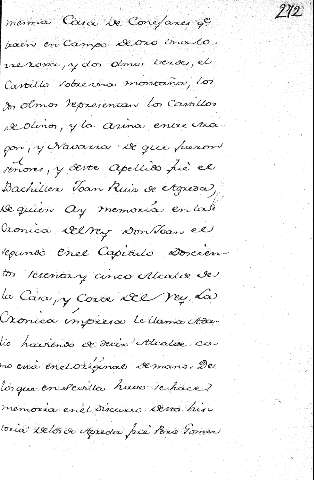 272
mesma Casa de Conejares q.e
traen en Campo de oro una to-
rre roxa, y dos olmos verdes, el
Castillo sobre una montaña, los
dos olmos representan los Castillos
de olmos, y la entre Ara-
gon, y Navarra de que fueron
señores, y deste Apellido fué el
Bachiller Joan Ruiz de Agreda,
de quien ay memoria en la
Cronica del Rey Don Joan el
segundo en el Capitulo Docien-
tos setenta y cinco Alcalde de
la Casa, y Corte del Rey. La
Cronica impresa le llama
haviendo de decir Alcalde co-
mo está en el original de mano. De
los que en Sevilla huvo se hace
memoria en el discurso desta his-
toria De los de Agreda fué Pero Gomez